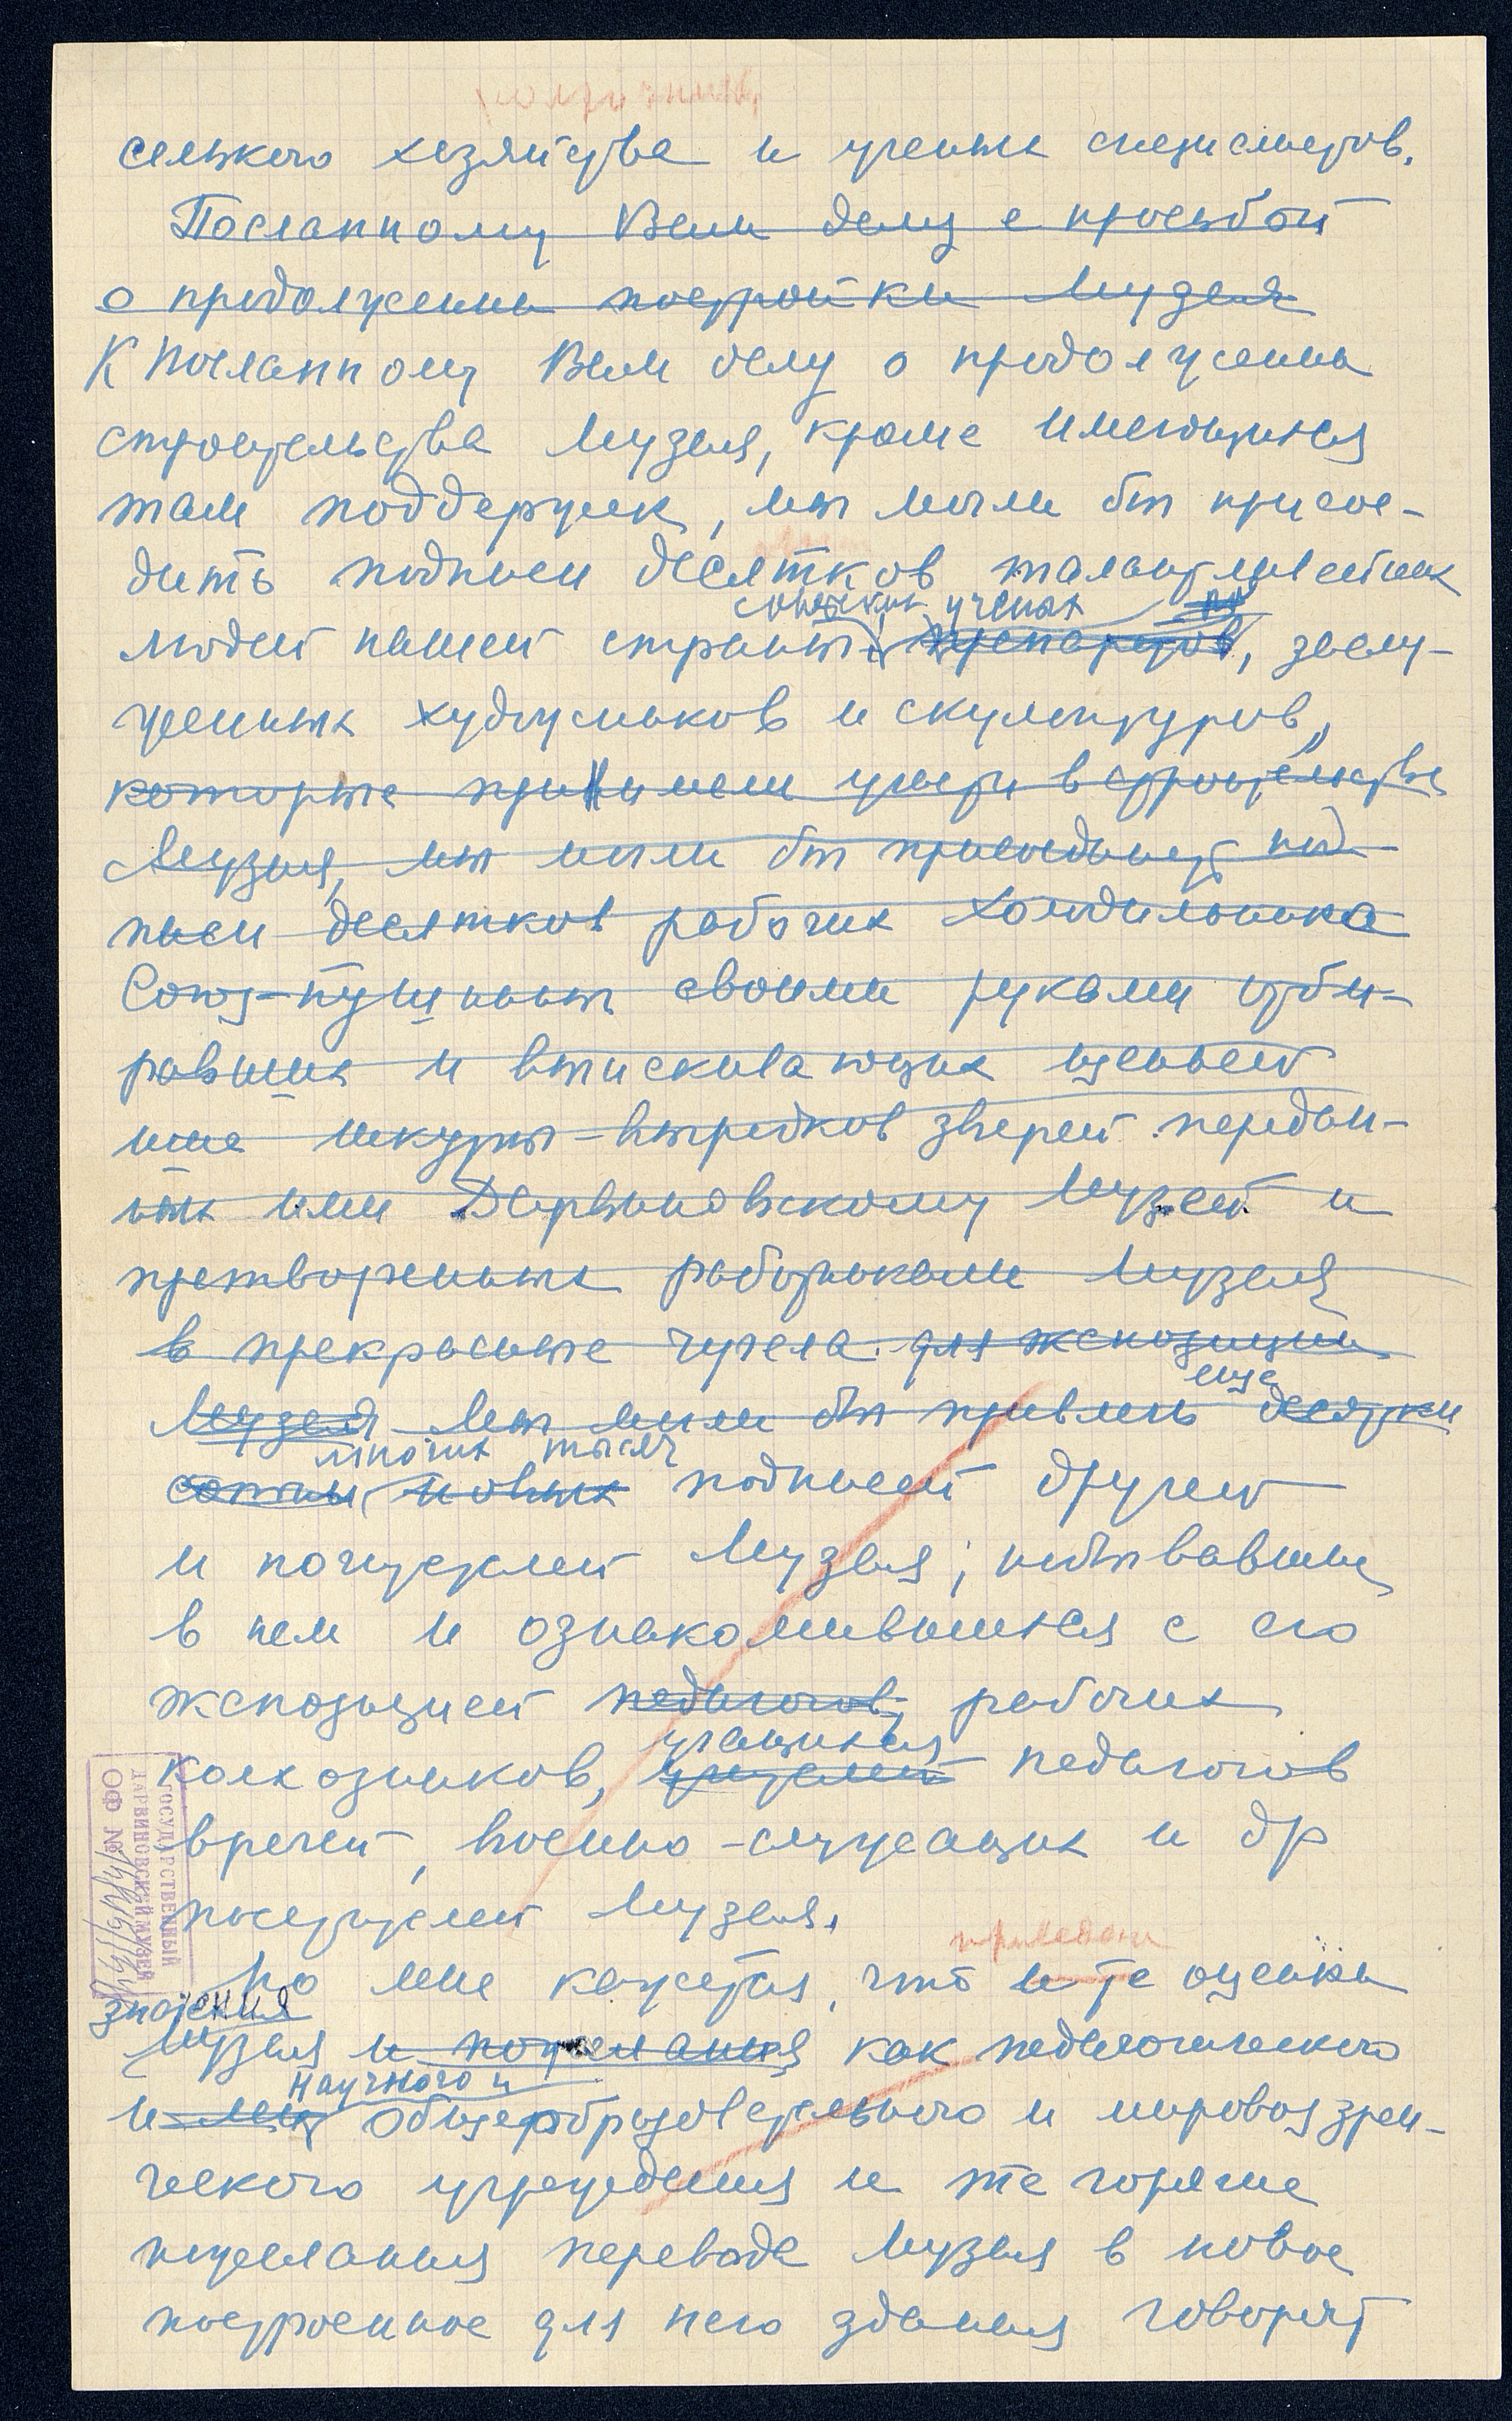 сельского хозяйства и ученых специалистов.
Посланному Вам делу с просьбой
о продолжении постройки Музея
К Посланному Вам делу о продолжении
строительства Музея, кроме имеющихся
там поддержек, мы могли бы присое-
дить подписи десятков талантливейших
советских ученых
людей нашей страны, препараторов, заслу-
женных художников и скульпторов,
которые принимали участие в строительстве
Музея, мы могли бы присоединить под-
писи десятков рабочих Холодильника
Союз-пушнины своими руками отби-
равших и выискивающих ценней
шие шкуры-выродков зверей передан-
ных ими Дарвиновскому Музею и
претворенных работниками Музея
в прекрасные чучела для экспозиции
еще
Музея Мы могли бы привлечь десятки
многих тысяч
сотни новых подписей друзей
и почитателей Музея, побывавших
в нем и ознакомившихся с его
экспозицией педагогов, рабочих
учащихся
колхозников, учителей педагогов
врачей, военно-служащих и др
посетителей Музея.
приведен
Но мне кажется, что и те оценки
значения
Музея и пожелания как педагогического
научного и
и общеобразовательного и мировоззрен-
ческого учреждения и те горячие
пожелания перевода Музея в новое
построенное для него здания говорят
ГОСУДАРСТВЕННЫЙ
ДАРВИНОВСКИЙ МУЗЕЙ
ОФ №